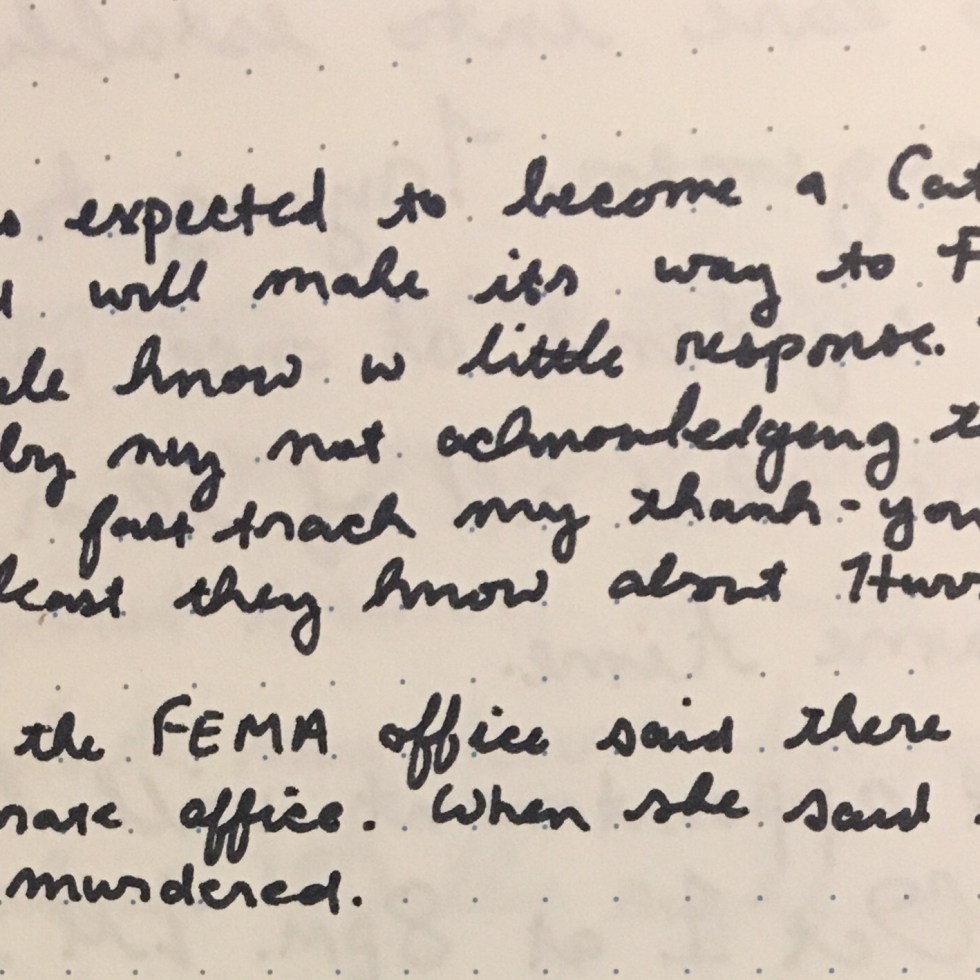 expected to become a Cat
will make its way to F
know w little response.
by my not acknowledging t
fast track my thank-you
least they know about Hurr
the FEMA office said there
office. When she said
murdered.